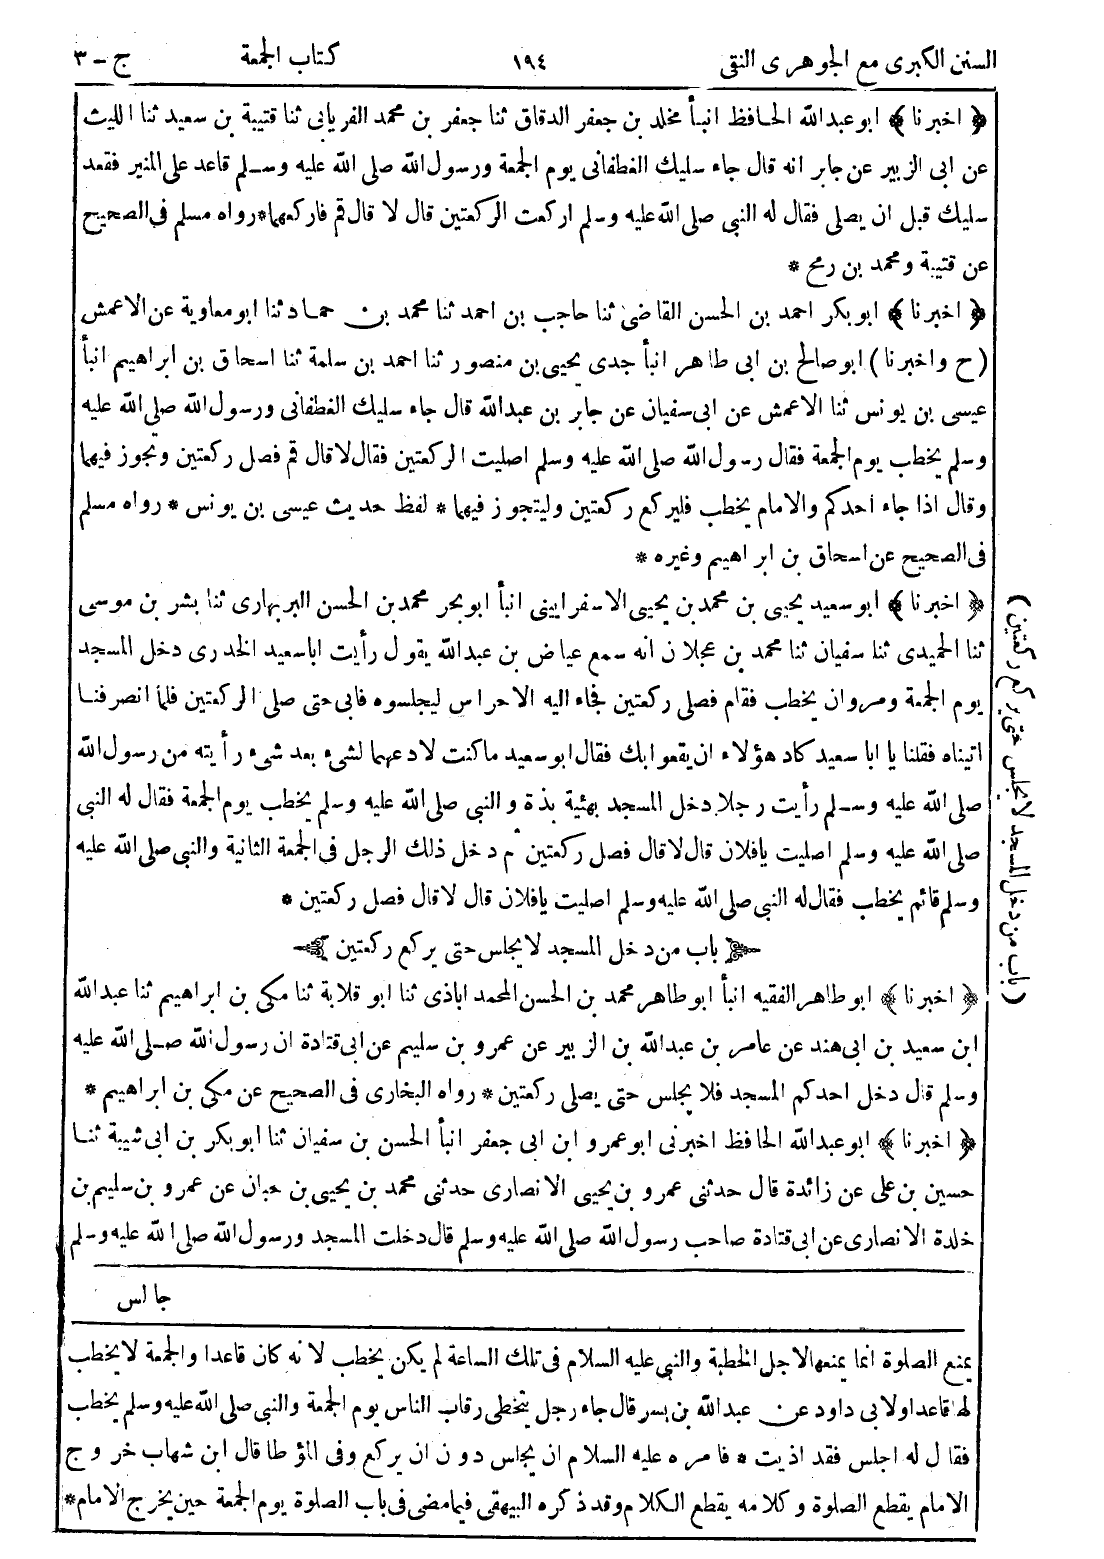 السنن الكبرى مع الجوهرى النقى ١٩٤ كتاب الجمعة ج - ٣
﴿ اخبرنا ﴾ ابو عبدالله الحافظ انبأ مخلد بن جعفر الدقاق ثنا جعفر بن محمد الفريابى ثنا قتيبة بن سعيد ثنا الليث
عن ابى الزبير عن جابر انه قال جاء سليك الغطفانى يوم الجمعة ورسول الله صلى الله عليه وسلم قاعد على المنبر فقعد
سليك قبل ان يصلى فقال له النبى صلى الله عليه وسلم اركعت الركعتين قال لا قال قم فاركعهما * رواه مسلم فى الصحيح
عن قتيبة ومحمد بن رمح *
﴿ اخبرنا ﴾ ابوبكر احمد بن الحسن القاضى ثنا حاجب بن احمد ثنا محمد بن حماد ثنا ابو معاوية عن الاعمش
(ح واخبرنا) ابوصالح بن ابى طاهر انبأ جدى يحيى بن منصور ثنا احمد بن سلمة ثنا اسحاق بن ابراهيم انبأ
عيسى بن يونس ثنا الاعمش عن ابى سفيان عن جابر بن عبدالله قال جاء سليك الغطفانى ورسول الله صلى الله عليه
وسلم يخطب يوم الجمعة فقال رسول الله صلى الله عليه وسلم اصليت الركعتين فقال لا قال قم فصل ركعتين وتجوز فيهما
وقال اذا جاء احدكم والامام يخطب فليركع ركعتين وليتجوز فيهما * لفظ حديث عيسى بن يونس * رواه مسلم
فى الصحيح عن اسحاق بن ابراهيم وغيره *
﴿ اخبرنا ﴾ ابو سعيد يحيى بن محمد بن يحيى الاسفرايينى انبأ ابو بحر محمد بن الحسن البربهارى ثنا بشر بن موسى
ثنا الحميدى ثنا سفيان ثنا محمد بن عجلان انه سمع عياض بن عبدالله يقول رأيت اباسعيد الخدرى دخل المسجد
يوم الجمعة ومروان يخطب فقام فصلى ركعتين فجاء اليه الاحراس ليجلسوه فابى حتى صلى الركعتين فلما انصرفنا
اتيناه فقلنا يا ابا سعيد كاد هؤلاء ان يقعوا بك فقال ابو سعيد ما كنت لادعهما لشىء بعد شىء رأيته من رسول الله
صلى الله عليه وسلم رأيت رجلا دخل المسجد بهئية بذة والنبى صلى الله عليه وسلم يخطب يوم الجمعة فقال له النبى
صلى الله عليه وسلم اصليت يافلان قال لا قال فصل ركعتين ثم دخل ذلك الرجل فى الجمعة الثانية والنبى صلى الله عليه
وسلم قائم يخطب فقال له النبى صلى الله عليه وسلم اصليت يافلان قال لا قال فصل ركعتين *
باب من دخل المسجد لا يجلس حتى يركع ركعتين
﴿ اخبرنا ﴾ ابو طاهر الفقيه انبأ ابو طاهر محمد بن الحسن المحمد اباذى ثنا ابو قلابة ثنا مكى بن ابراهيم ثنا عبدالله
ابن سعيد بن ابى هند عن عامر بن عبدالله بن الزبير عن عمرو بن سليم عن ابى قتادة ان رسول الله صلى الله عليه
وسلم قال دخل احدكم المسجد فلا يجلس حتى يصلى ركعتين * رواه البخارى فى الصحيح عن مكى بن ابراهيم *
﴿ اخبرنا ﴾ ابو عبدالله الحافظ اخبرنى ابو عمرو ابن ابى جعفر انبأ الحسن بن سفيان ثنا ابوبكر بن ابى شيبة ثنا
حسين بن على عن زائدة قال حدثنى عمرو بن يحيى الانصارى حدثنى محمد بن يحيى بن حبان عن عمرو بن سليم بن
خلدة الانصارى عن ابى قتادة صاحب رسول الله صلى الله عليه وسلم قال دخلت المسجد ورسول الله صلى الله عليه وسلم
جالس
يمنع الصلوة انما يمنعها لاجل الخطبة والنبى عليه السلام فى تلك الساعة لم يكن يخطب لانه كان قاعدا والجمعة لا يخطب
لها قاعدا ولابى داود عن عبدالله بن بسر قال جاء رجل يتخطى رقاب الناس يوم الجمعة والنبى صلى الله عليه وسلم يخطب
فقال له اجلس فقد اذيت * فامره عليه السلام ان يجلس دون ان يركع وفى المؤطا قال ابن شهاب خروج
الامام يقطع الصلوة وكلامه يقطع الكلام وقد ذكره البيهقى فيما مضى فى باب الصلوة يوم الجمعة حين يخرج الامام *
(باب من دخل المسجد لا يجلس حتى يركع ركعتين)